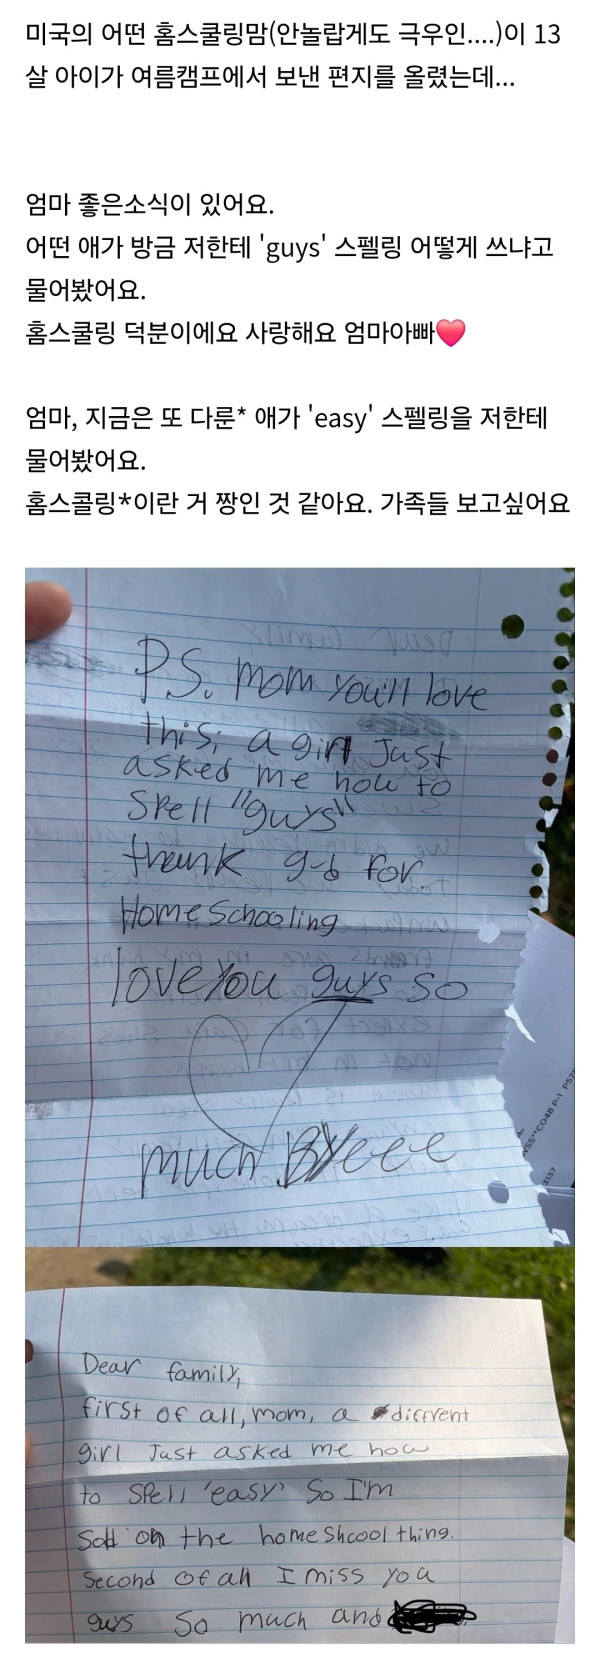 미국의 어떤 홈스쿨링맘(안놀랍게도 극우인....)이 13
살 아이가 여름캠프에서 보낸 편지를 올렸는데...
엄마 좋은소식이 있어요.
어떤 애가 방금 저한테 'guys' 스펠링 어떻게 쓰냐고
물어봤어요.
홈스쿨링 덕분이에요 사랑해요 엄마아빠❤️
엄마, 지금은 또 다룬* 애가 'easy' 스펠링을 저한테
물어봤어요.
홈스콜링*이란 거 짱인 것 같아요. 가족들 보고싶어요
P.S. mom you'll love
this; a girl Just
asked me how to
spell "guys"
thank g-d for
HomeSchooling
love you guys so
much BYeee
Dear family,
first of all, mom, a diffrent
girl Just asked me how
to spell 'easy' So I'm
Sold on the homeshcool thing.
Second of all I miss you
guys so much and